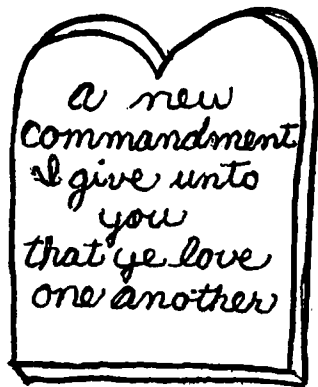 a new
commandment
I give unto
you
that ye love
one another